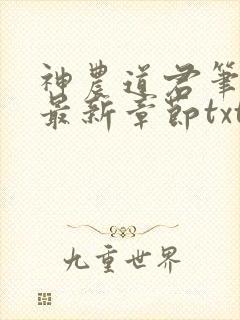 神農道君筆
最新章節txt
九重世界